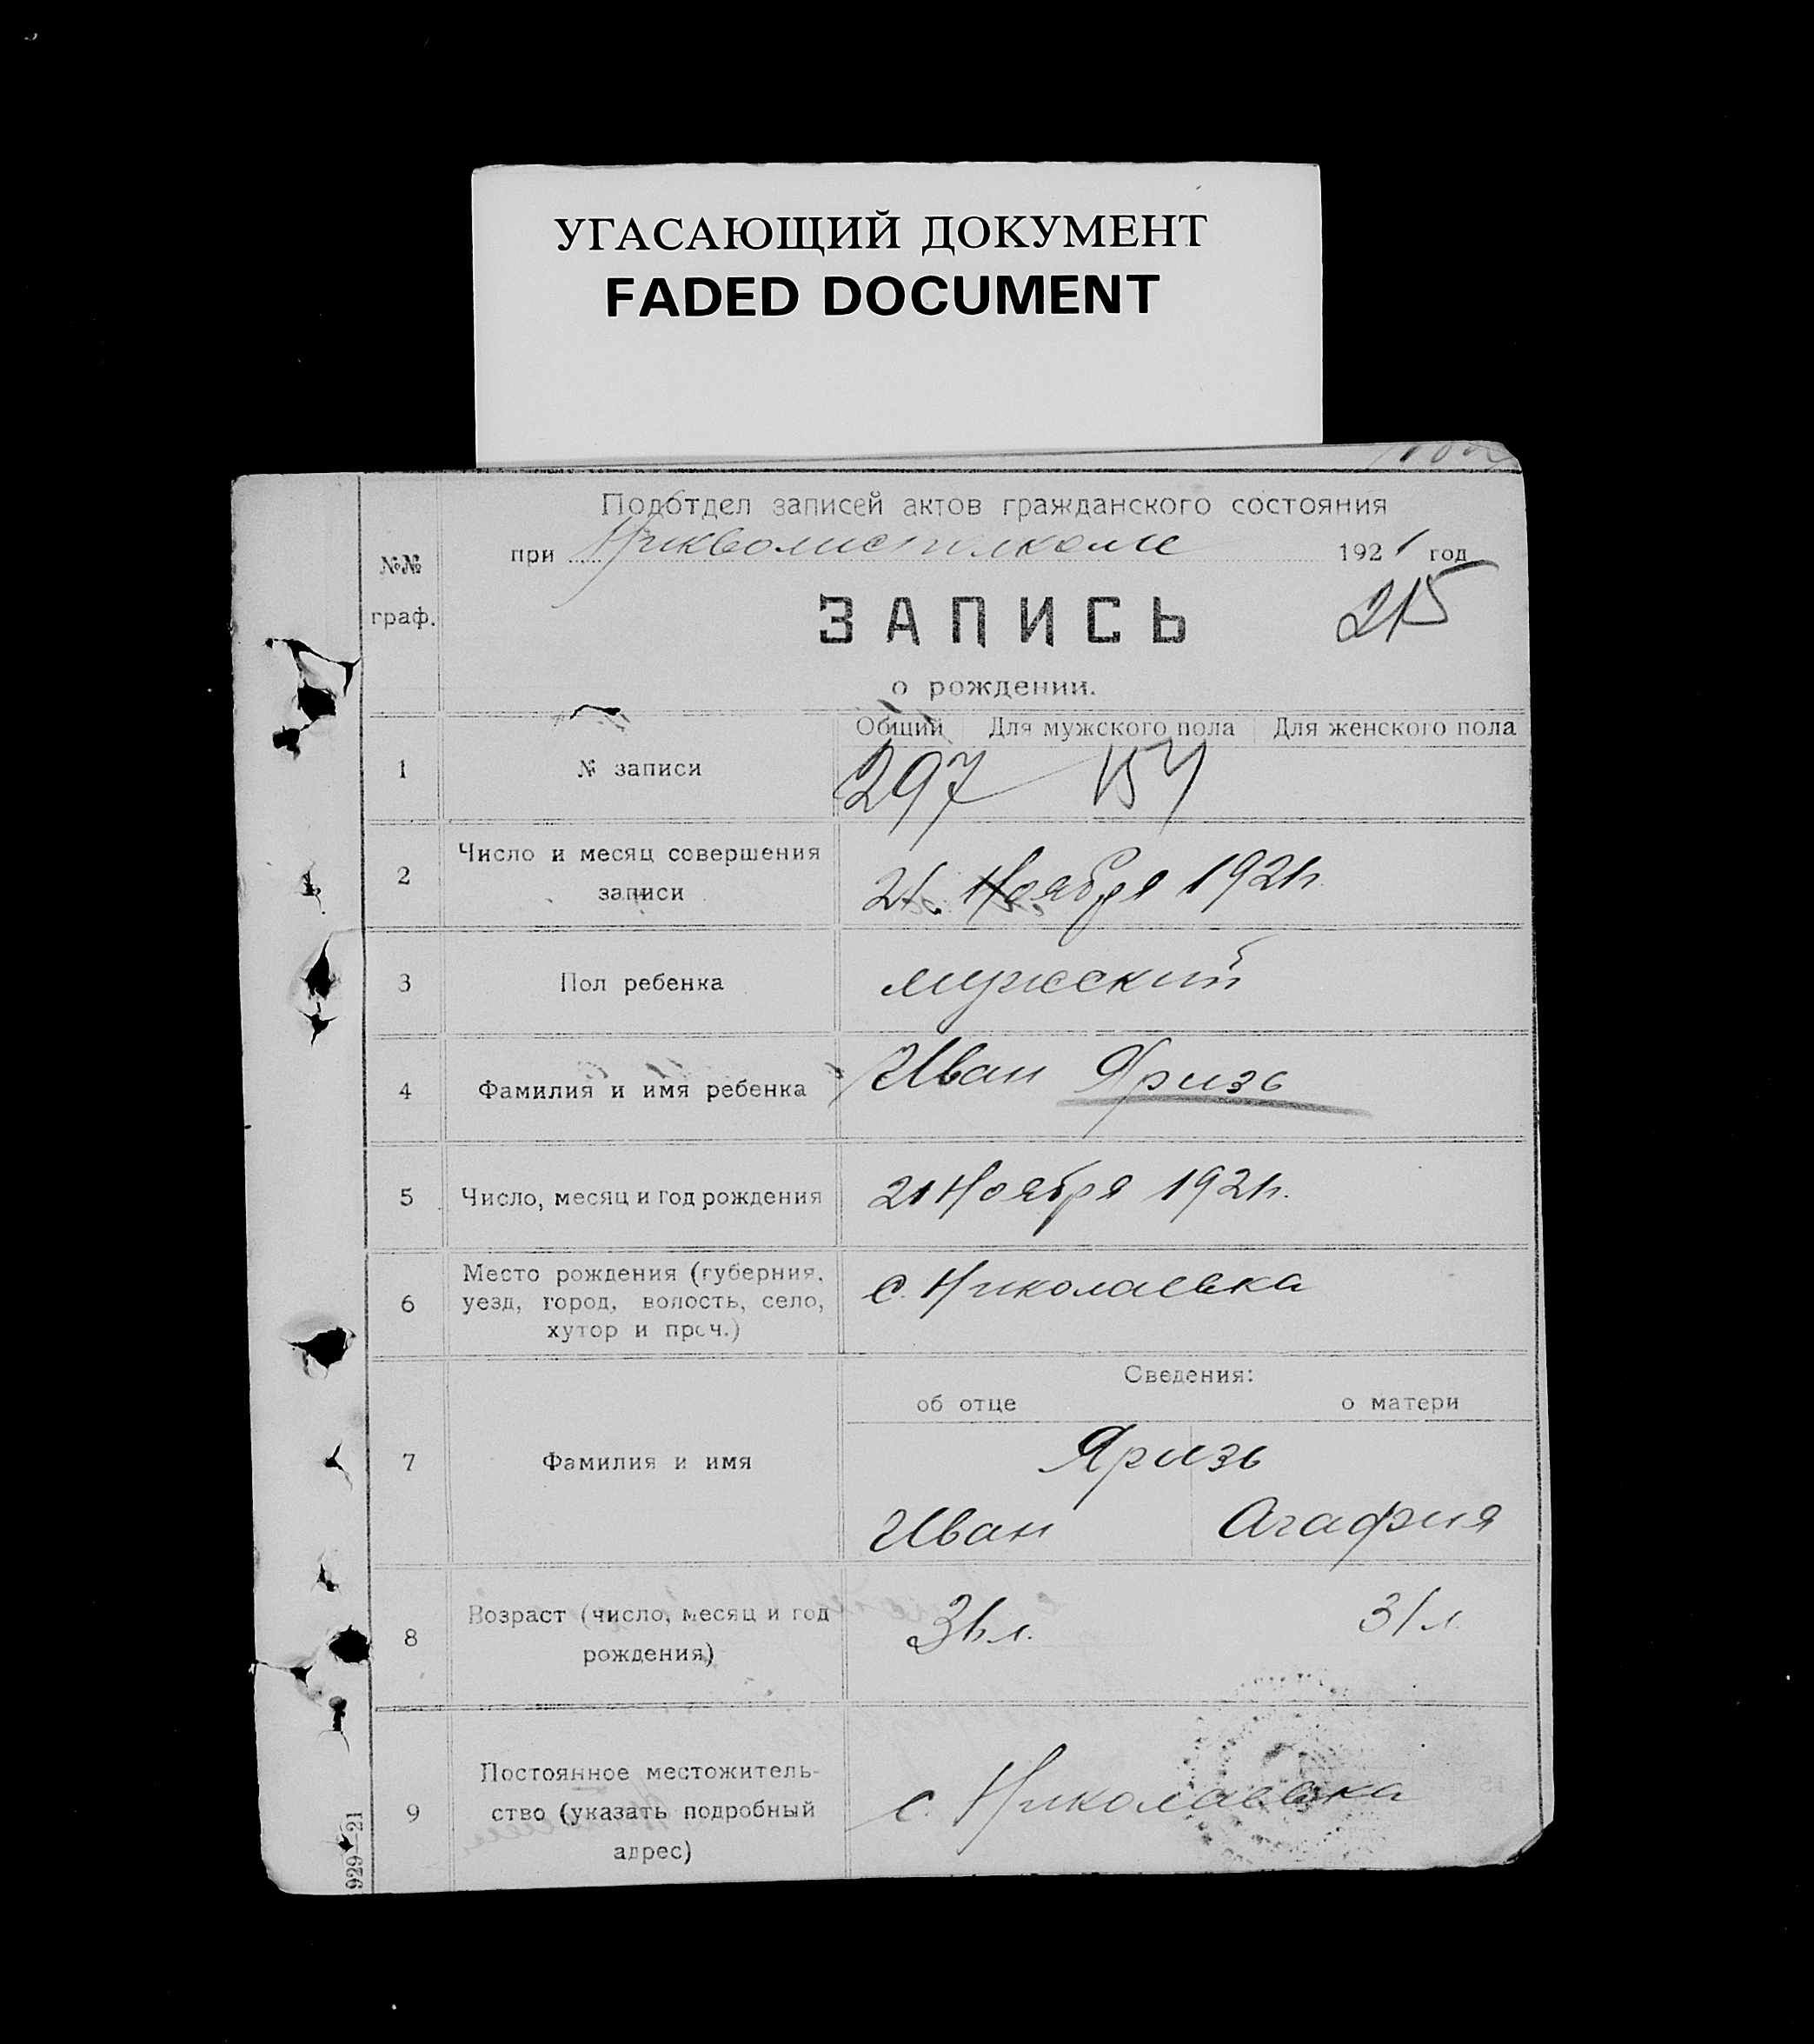 УГАСАЮЩИЙ ДОКУМЕНТ
FADED DOCUMENT
Подотдел записей актов гражданского состояния
при Никволисполкоме 1921 год
№№
граф.
ЗАПИСЬ
215
о рождении.
Общий Для мужского пола Для женского пола
1 № записи 297 157
2 Число и месяц совершения
записи
21. Ноября 1921г.
3 Пол ребенка мужский
4 Фамилия и имя ребенка Иван Яризь
5 Число, месяц и год рождения 21 Ноября 1921г.
6 Место рождения (губерния,
уезд, город, волость, село,
хутор и проч.)
с. Николаевка
Сведения:
об отце о матери
7 Фамилия и имя
Яризь
Иван Агафия
8 Возраст (число, месяц и год
рождения)
36 л. 31 л.
9 Постоянное местожитель-
ство (указать подробный
адрес)
с. Николаевка
929—21